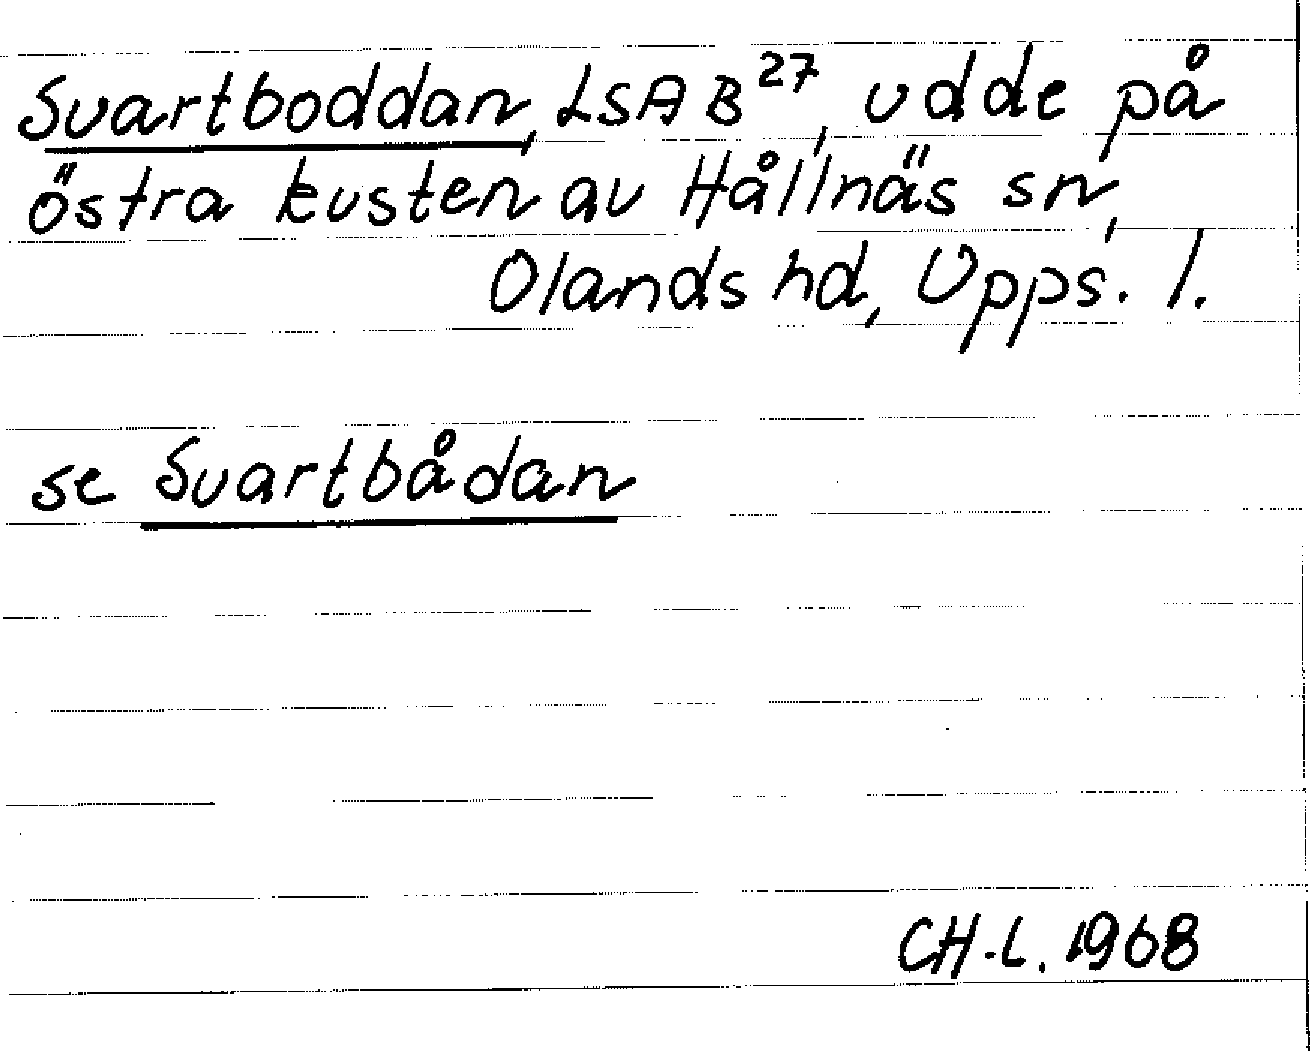 Svartboddan, LSA B²⁷, udde på
östra kusten av Hållnäs sn,
Olands hd, Upps. l.
se Svartbådan
CH-L. 1968